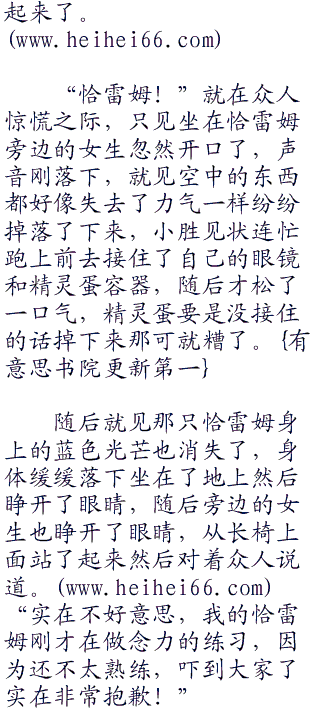 起来了。
(www.heihei66.com)
“恰雷姆！”就在众人
惊慌之际，只见坐在恰雷姆
旁边的女生忽然开口了，声
音刚落下，就见空中的东西
都好像失去了力气一样纷纷
掉落了下来，小胜见状连忙
跑上前去接住了自己的眼镜
和精灵蛋容器，随后才松了
一口气，精灵蛋要是没接住
的话掉下来那可就糟了。{有
意思书院更新第一}
随后就见那只恰雷姆身
上的蓝色光芒也消失了，身
体缓缓落下坐在了地上然后
睁开了眼睛，随后旁边的女
生也睁开了眼睛，从长椅上
面站了起来然后对着众人说
道。(www.heihei66.com)
“实在不好意思，我的恰雷
姆刚才在做念力的练习，因
为还不太熟练，吓到大家了
实在非常抱歉！”